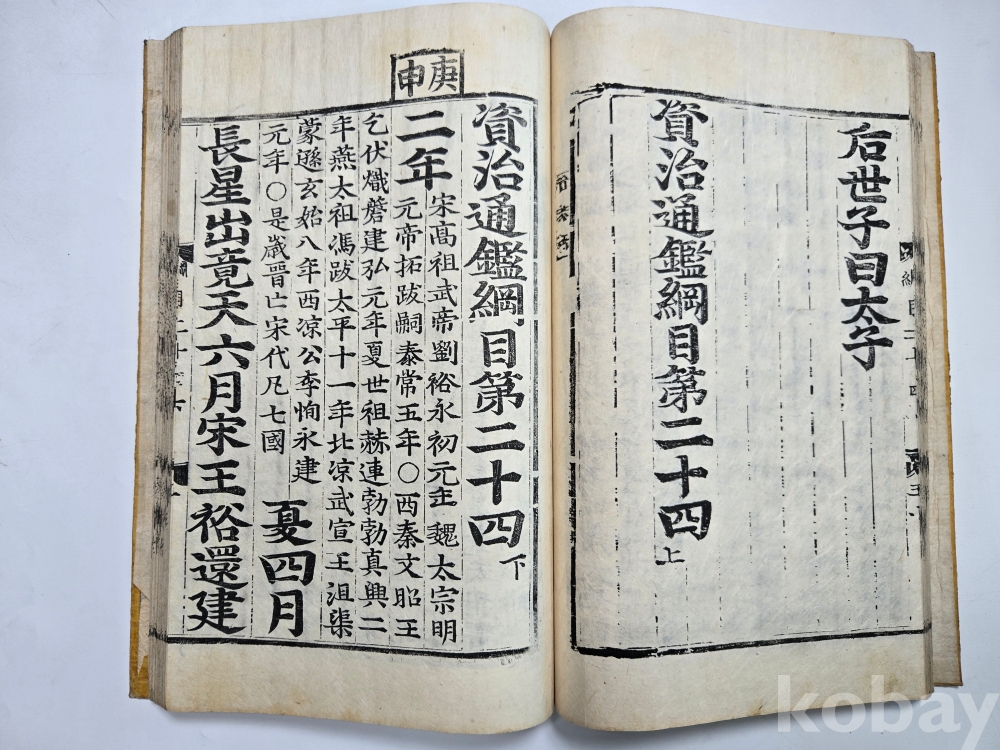 后世子曰太子
資治通鑑綱目第二十四上
庚申
資治通鑑綱目第二十四下
二年
宋高祖武帝劉裕永初元年魏太宗明
元帝拓跋嗣泰常五年○西秦文昭王
乞伏熾磐建弘元年夏世祖赫連勃勃真興二
年燕太祖馮跋太平十一年北凉武宣王沮渠
蒙遜玄始八年西凉公李恂永建
元年○是歲晉亡宋代凡七國
夏四月
長星出竟天六月宋王裕還建
kobay